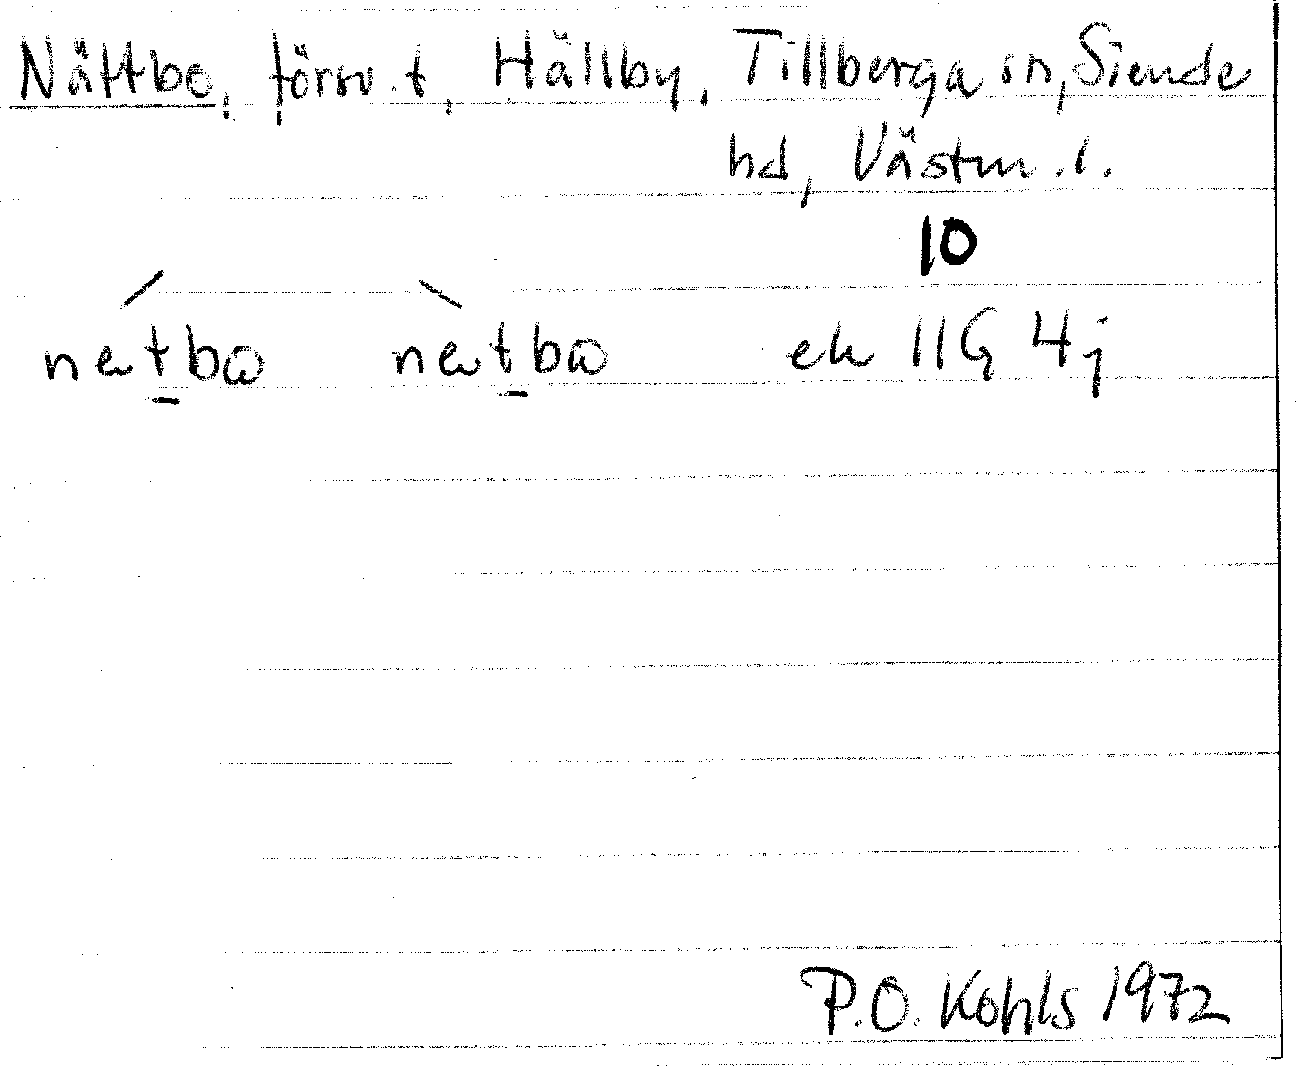 Nättbo, försv. t, Hällby, Tillberga sn, Siende
hd, Västm. l.
10
nätbω nätbω ek 11G 4j
P.O. Kohls 1972